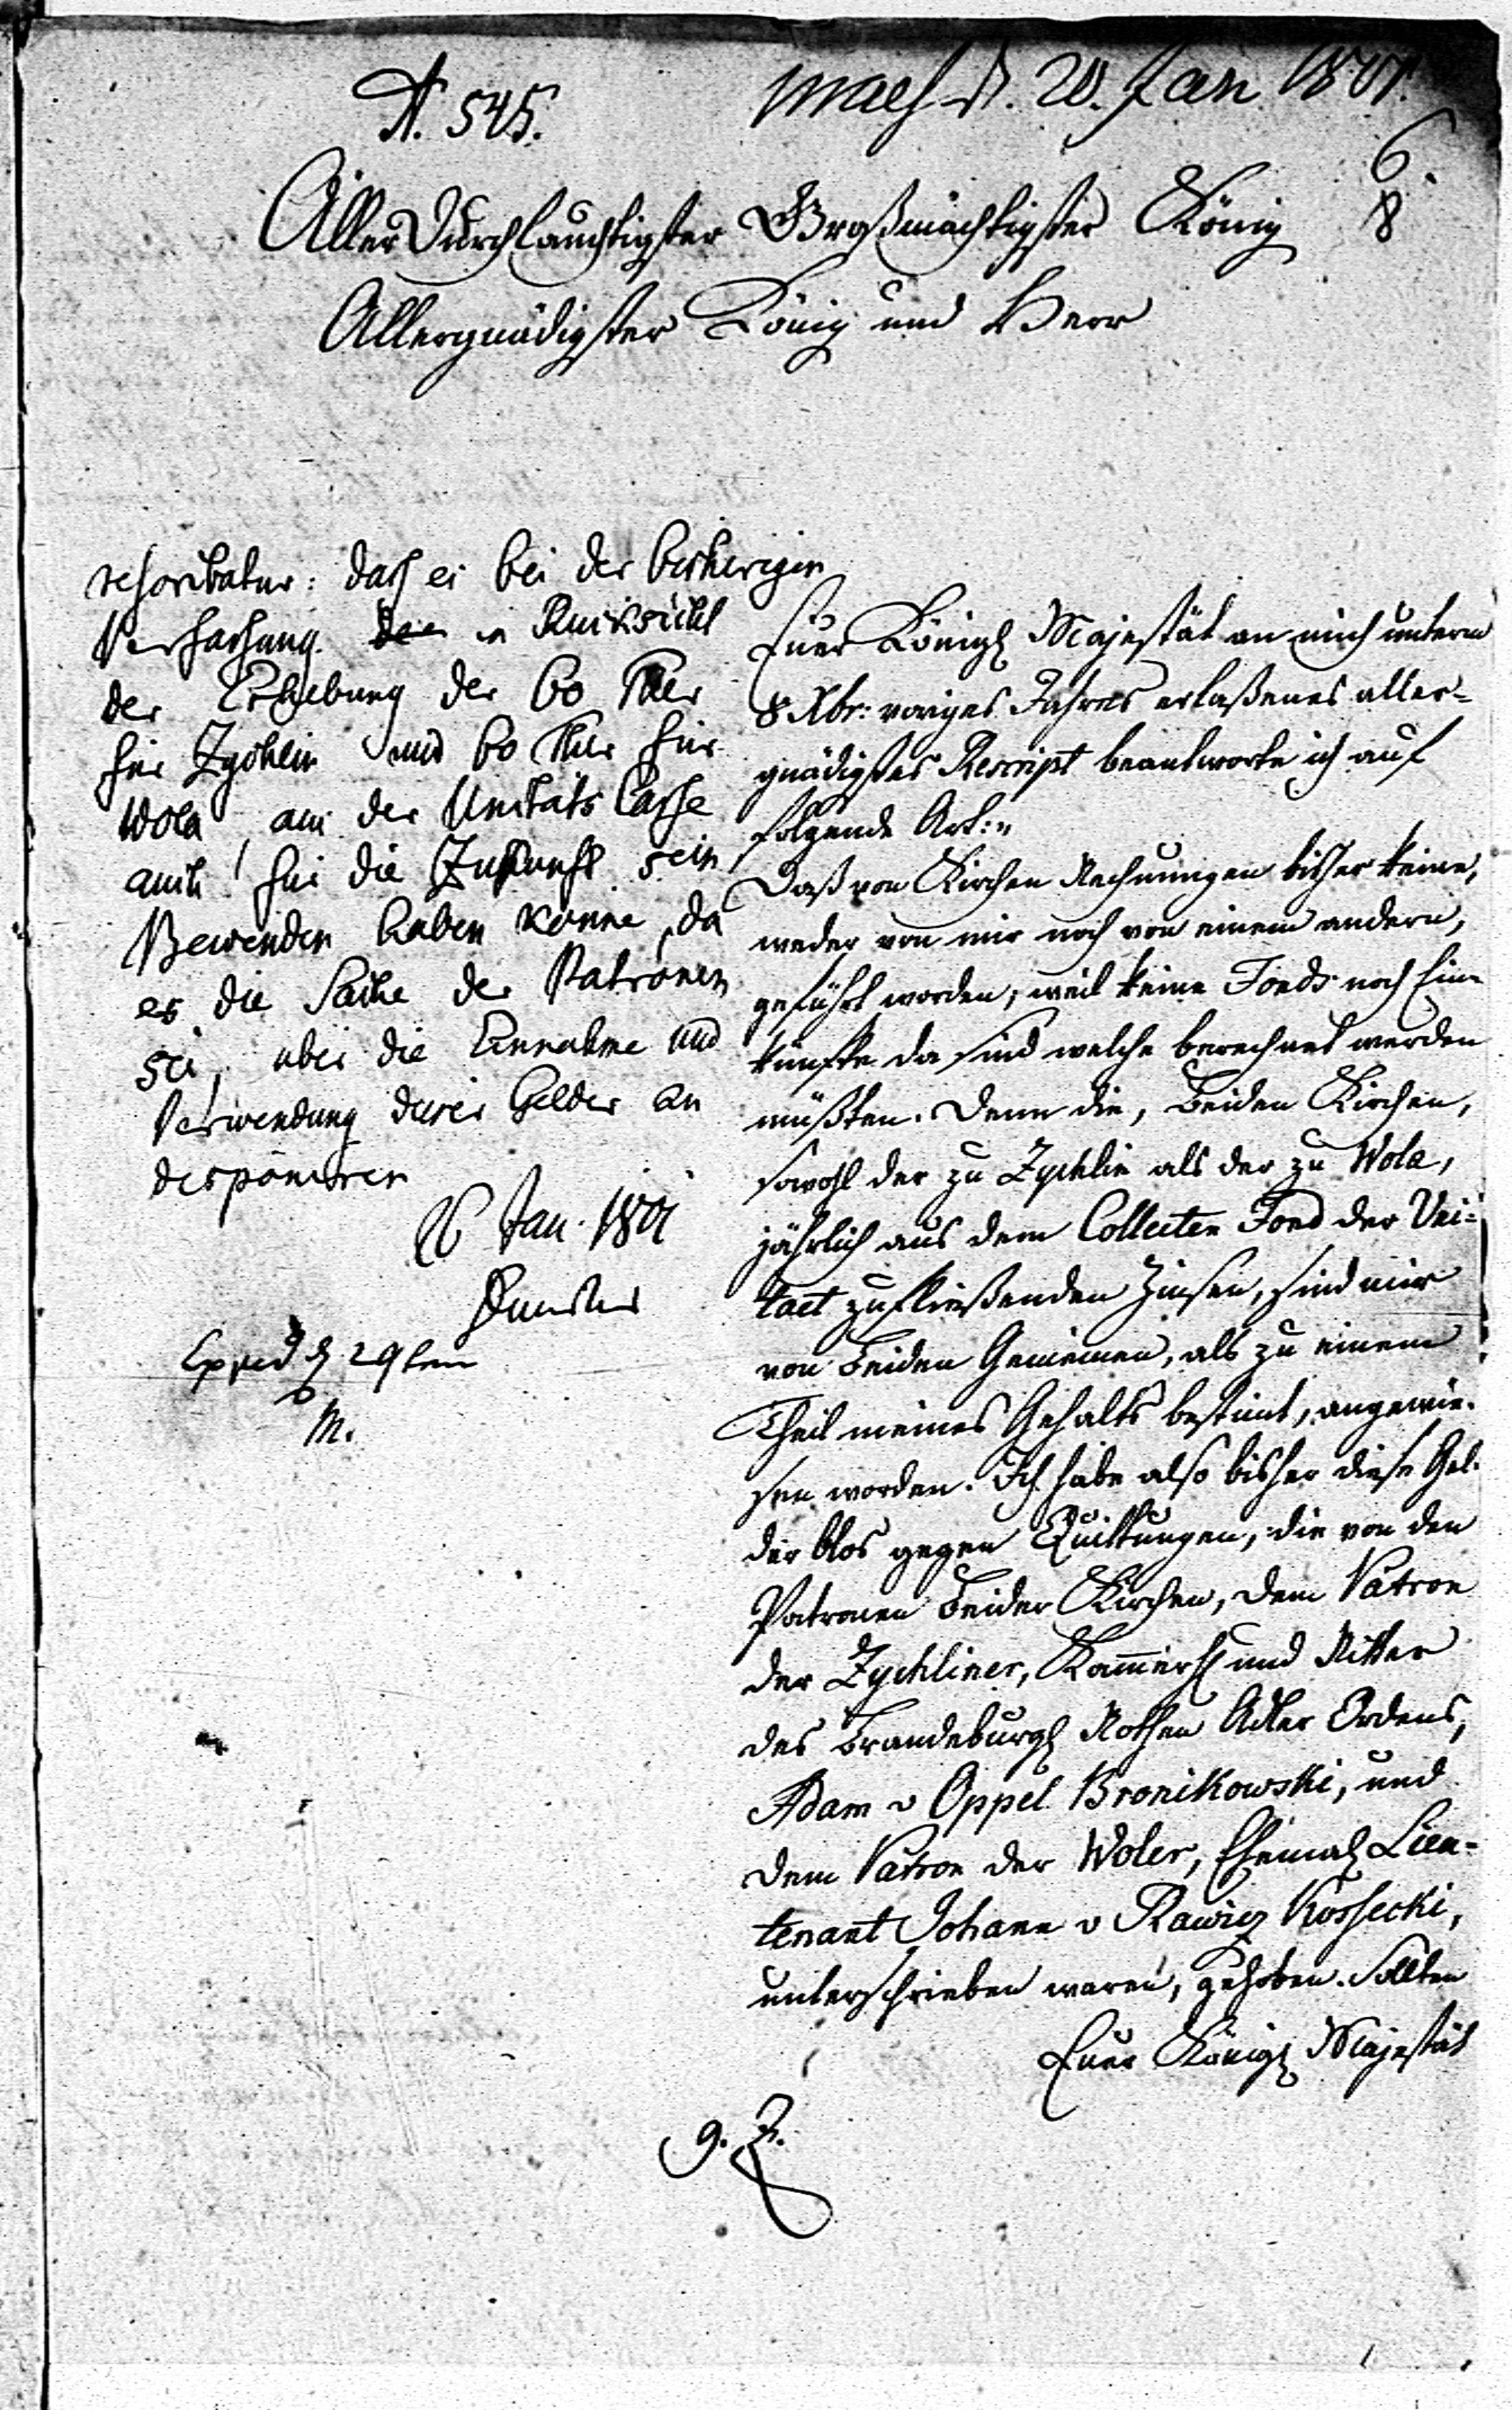 N. 545.
d. 20. Jan 1801.
6
8
AllerDurchlauchtigster Großmächtigster König
Allergnädigster König und Herr
rescribatur: daß es bei der bisherigen
Verfassung in Rücksicht
der Erhebung der 60 Thlr
für Zychlin und 60 Thlr für
Wola, aus der Unitäts Casse
auch für die Zukunft sein
Bewenden haben könne, da
es die Sache der Patronen
sei, über die Einnahme und
Verwendung dieser Gelder zu
disponiren
26 Jan. 1801
Exped d 29ten
M.
Euer Königl Majestät an mich unterm
8 Xbr: voriges Jahres erlaßenes aller-
gnädigstes Rescript beantworte ich auf
folgende Art:
Daß von Kirchen Rechnungen bisher keine,
weder von mir noch von einem andern,
geführt worden, weil keine Fonds noch Ein-
künfte da sind welche berechnet werden
müßten. Denn die, beiden Kirchen,
sowohl der zu Zychlin als der zu Wola,
jährlich aus dem Collecten Fond der Uni-
taet zufließenden Zinsen, sind mir
von beiden Gemeinen, als zu einem
Theil meines Gehalts bestimt, angewie-
sen worden. Ich habe also bisher diese Gel-
der blos gegen Quittungen, die von den
Patronen beider Kirchen, dem Patron
der Zychliner, Kammerh und Ritter
des Brandeburgl Rothen Adler Ordens,
Adam v Oppel Bronikowski, und
dem Patron der Woler, Ehemal Lieu-
tenant Johann v Rawicz Kossecki,
unterschrieben waren, gehoben. Sollten
Euer Königl Majestät
g. Z.